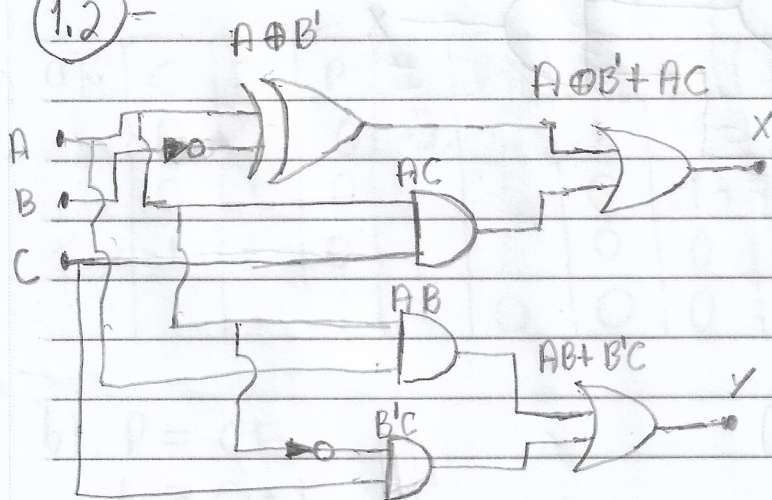 1.2) -
A ⊕ B'
A ⊕ B' + AC
X
A
AC
B
C
AB
AB + B'C
Y
B'C